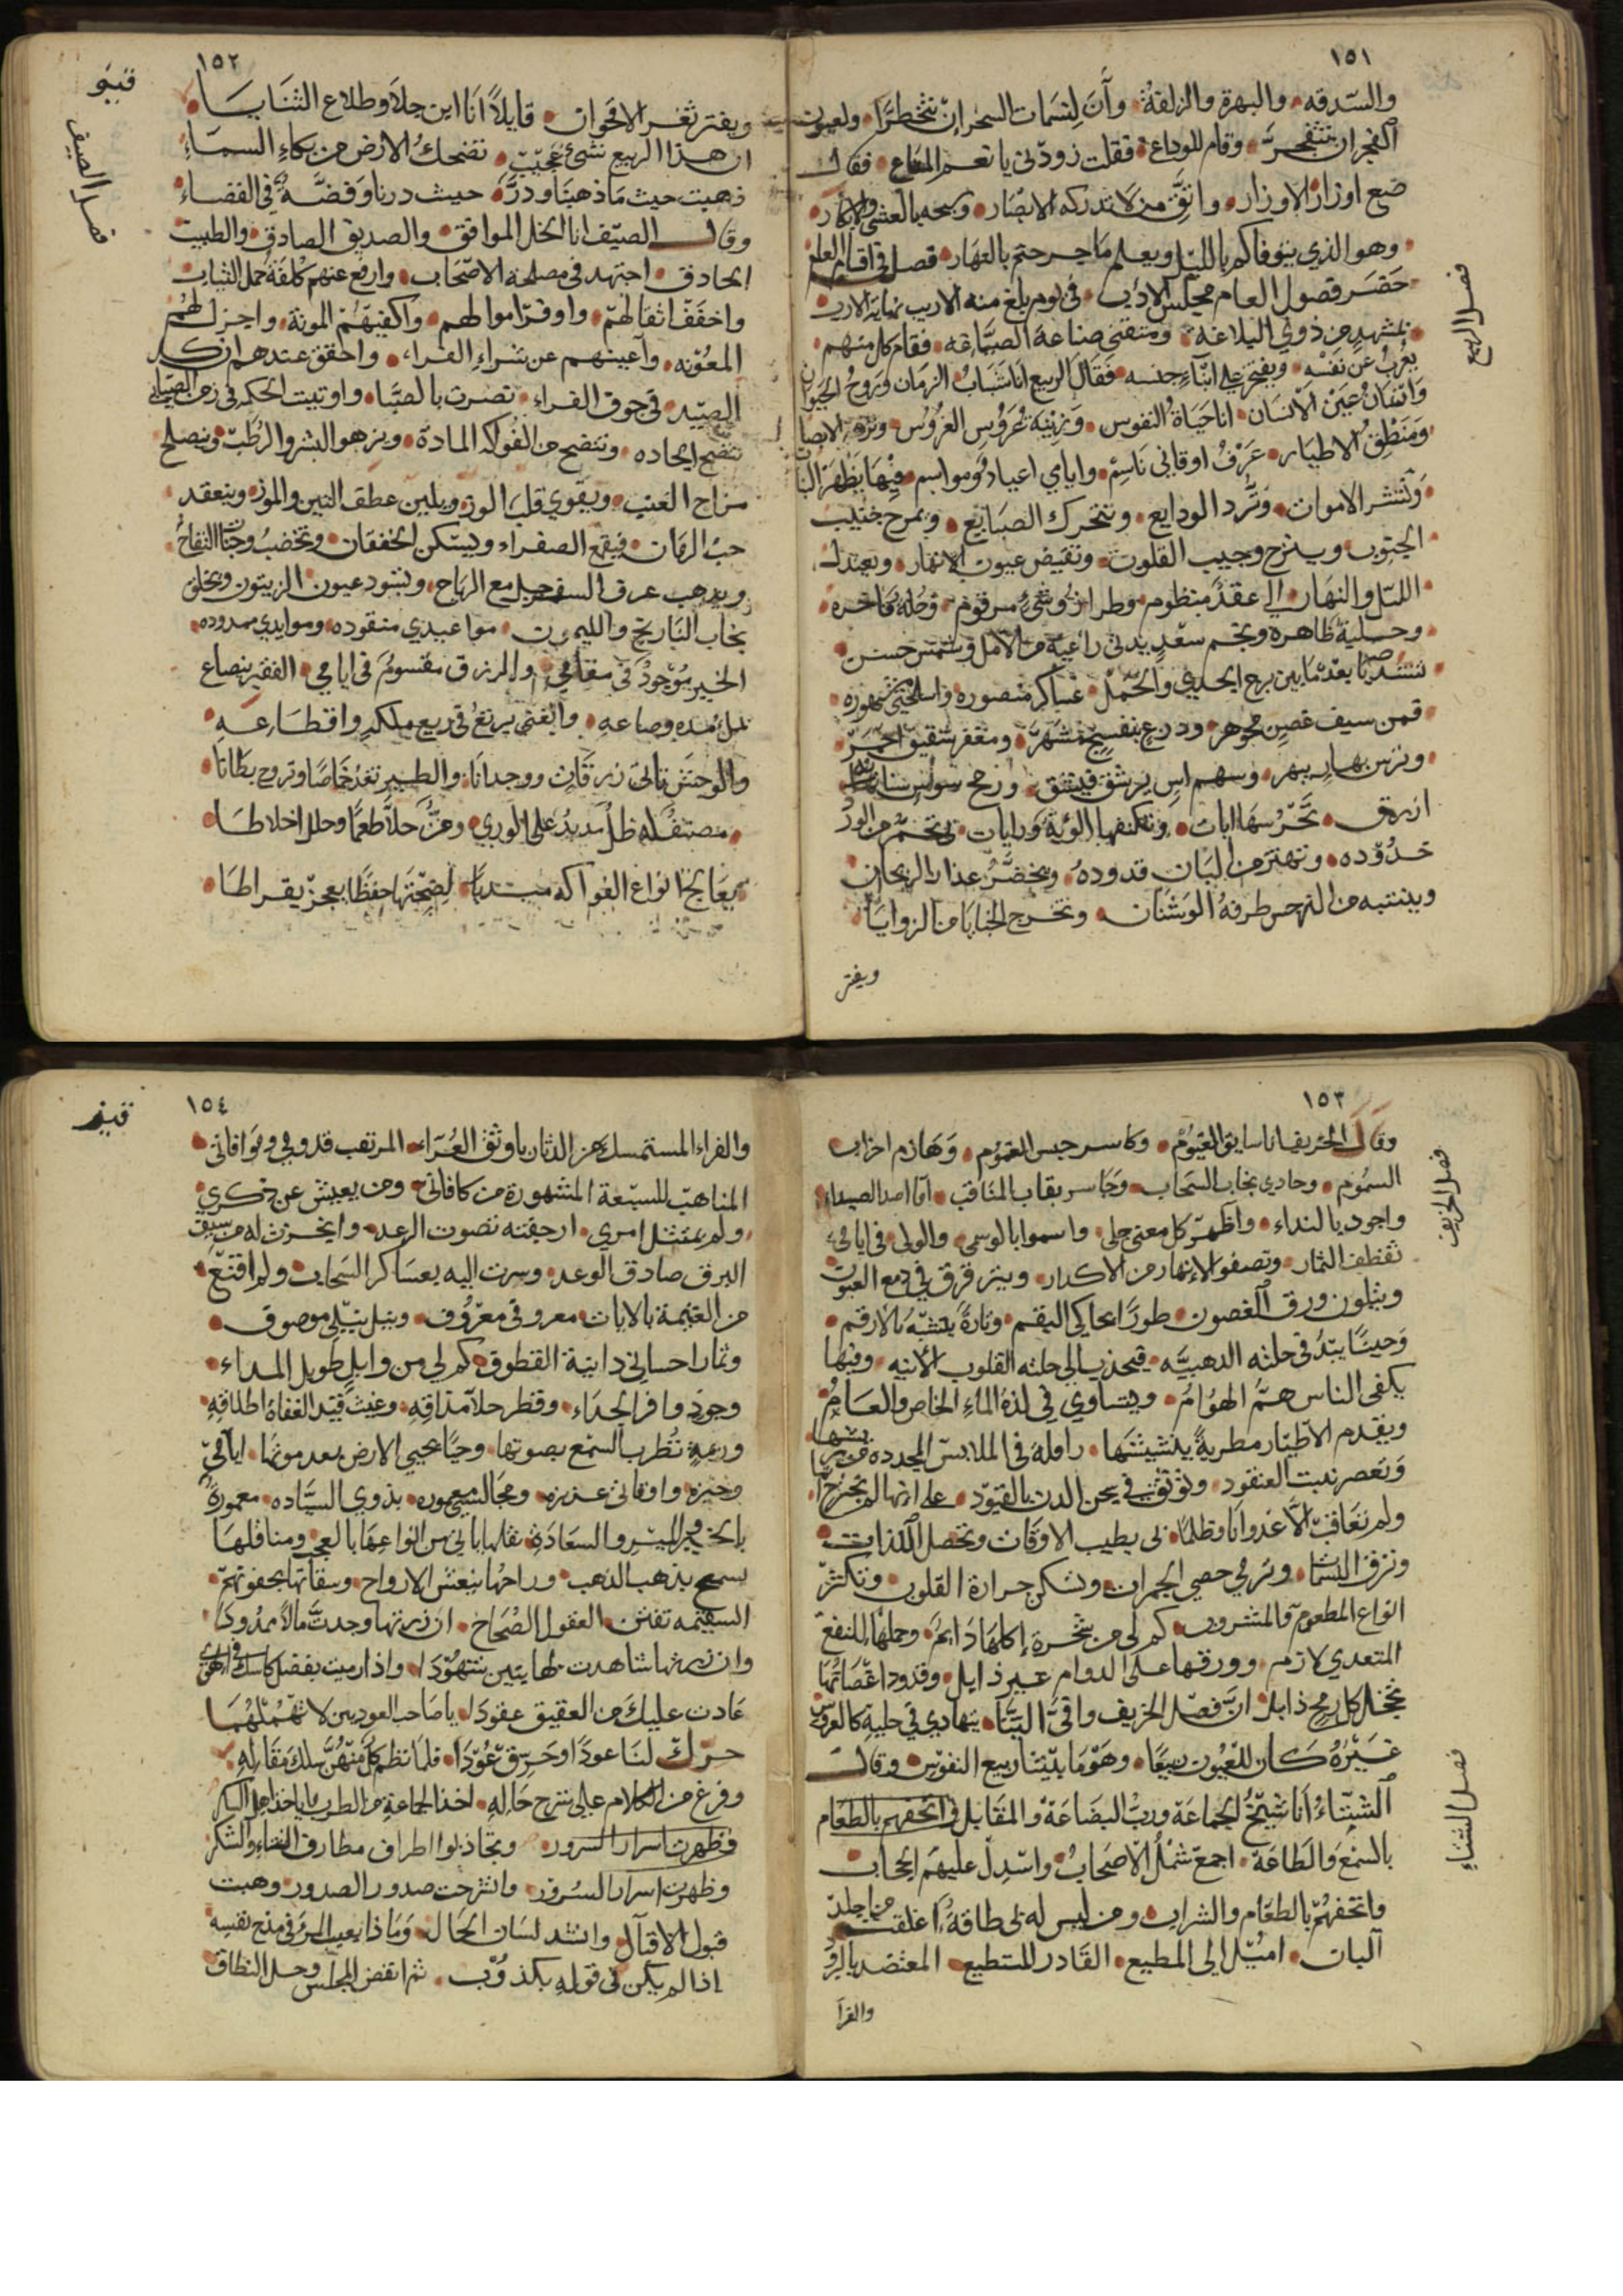 ١٥١
والسدفه والبهرة والزلفة وآن لنسمات السحر ان تتخطرا ولعيون
الفجر ان تتفجر وقام للوداع فقلت زودني يا نعم المتاع فقال
ضع اوزار الاوزار واتق من لا تدركه الابصار وسبحه بالعشي والابكار
وهو الذي يتوفاكم بالليل ويعلم ما جرحتم بالنهار فصل في اقسام العام
حضر فصول العام مجلس الادب في يوم بلغ منه الاريب نهاية الارب
بمشهد من ذوي البلاغة ومتقني صناعة الصياغه فقام كل منهم
يعرب عن نفسه ويفتخر على ابناء جنسه فقال الربيع انا شباب الزمان وروح الحيوان
وانسان عين الانسان انا حياة النفوس وزينة عروس الغروس ونزهة الابصار
ومنطق الاطيار عرف اوقاتي ناسم وايامي اعياد ومواسم فيها يظهر النبات
وتنشر الاموات وترد الودايع وتتحرك الصبايع ويمرح جنيب
الجنوب وينزح وجيب القلوب وتفيض عيون الانهار ويعتدل
الليل والنهار لي عقد منظوم وطراز وشي مرقوم وحلة فاخره
وحلية ظاهرة ونجم سعد يدني راعيه من الامل وشمس حسن
تنشد يا بعد ما بين برج الجدي والحمل عساكر منصوره واسلحتي مشهوره
فمن سيف غصن مجوهر ودرع بنفسج مشهر ومغفر شقيق احمر
وترس بهار يبهر وسهم اس يرشق فينشق ورمح سوسن سنانه
ازرق تحرسها ايات وتكنفها الوية ورايات بي تحمر من الورد
خدوده وتهتز من البان قدوده ويخضر عذار الريحان
وينتبه من النرجس طرفه الوسنان وتخرج الخبايا من الزوايا
ويفتر
فصل الربيع
١٥٢
ويفتر ثغر الاقحوان قايلا انا ابن جلا وطلاع الثنايا
ان هذا الربيع شيء عجيب تضحك الارض من بكاء السماء
ذهبت حيث ما ذهبنا ودر حيث درنا وفضة في الفضاء
وقال الصيف انا الخل الموافق والصديق الصادق والطبيب
الحاذق اجتهد في مصلحة الاصحاب وارفع عنهم كلفة حمل الثياب
واخفف اثقالهم واوفر اموالهم واكفيهم المونة واجزل لهم
المعونه واغنيهم عن شراء الفراء واحقق عندهم ان كل
الصيد في جوف الفراء نصرت بالصبا واوتيت الحكم في زمن الصبا بي
تتضح الجاده وتنضج من الفواكه المادة ويزهو البسر والرطب وينصلح
مزاج العنب ويقوي قلب اللوز ويلين عطف التين والموز وينعقد
حب الرمان فيقمع الصفراء ويسكن الخفقان وتخضب وجنات التفاح
ويذهب عرف السفرجل مع الرياح وتسود عيون الزيتون وتخلق
تيجان النارنج والليمون مواعيدي منقوده وموايدي ممدوده
الخير موجود في مقامي والرزق مقسوم في ايامي الفقير ينصاع
بملء مده وصاعه والغني يرتع في ربع ملكه واقطاعه
والوحش تاتي زرقات ووحدانا والطير تغدو خماصا وتروح بطانا
مصيف له ظل مديد على الوري ومن حلا طعما وحلل اخلاطا
يعالج انواع الفواكه مبديا لصحتها حفظا يعجز بقراطا
قيبو
فصل الصيف
١٥٣
وقال الخريف انا سايق الغيوم وكاسر جيش الغموم وهازم احزاب
السموم وحادي نجايب السحايب وحاسر نقاب المناقب انا اصد الصدا
واجود بالنداء واظهر كل معنى جلي واسمو بالوسمي والولي في ايامي
تقطف الثمار وتصفو الانهار من الاكدار ويترقرق في دمع العيون
ويتلون ورق الغصون طورا يحاكي البقم وتارة يتشبه بالارقم
وحينا يبدو في حلته الذهبيه فيجذب الى حلته القلوب الابيه وفيها
يكفى الناس هم الهوام ويتساوي في لذة الماء الخاص والعام
ويقدم الاطيار مطربة بنشيشها رافلة في الملابس المجدده من ريشها
وتعصر بنت العنقود وتوثق في سجن الدن بالقيود على انها لم تجترح اثما
ولم تعاقب الا عدوانا وظلما بي تطيب الاوقات وتحصل اللذات
وترق النسمات وترمي حصي الجمرات وتسكن حرارة القلوب وتكثر
انواع المطعوم والمشروب كم لي من شجرة اكلها دايم وحملها للنفع
المتعدي لازم وورقها على الدوام غير زايل وقدود اغصانها
تخجل كل رمح ذابل ان فصل الخريف وافى الينا يتهادي في حلية كالعروس
غيره كان للعيون ربيعا وهو ما بيننا ربيع النفوس وقال
الشتاء انا شيخ الجماعة ورب البضاعة والمقابل في اتحفهم بالطعام
بالسمع والطاعة اجمع شمل الاصحاب واسدل عليهم الحجاب
واتحفهم بالطعام والشراب ومن ليس له بي طاقة اغلقت من اجله
الباب اميل الى المطيع القادر المستطيع المعتضد بالبرود
والفرآ
فصل الخريف
فصل الشتاء
١٥٤
والفراء المستمسك من الدثار باوثق العراء المرتقب قدومي وموافاتي
المتاهب للسبعة المشهورة من كافاتي ومن يعش عن ذكري
ولم يمتثل امري ارجفته بصوت الرعد وانجزت له من سيف
البرق صادق الوعد وسرت اليه بعساكر السحاب ولم اقنع
من الغنيمة بالاياب معروفي معروف ونيل نيلي موصوف
وثمار احساني دانية القطوف كم لي من وابل طويل المداء
وجود وافر الجداء وقطر حلا مذاقه وغيث قيد العفاة اطلاقه
وديمة تطرب السمع بصوتها وحيا يحيي الارض بعد موتها ايامي
وجيزه واوقاتي عزيزه ومجالسي معموره بذوي السياده معمورة
بالخير والمير والسعادة نقلها ياتي من انواعها بالعجب ومناقلها
تسمح بذهب اللهب وراحها تنعش الارواح وسقاتها بجفونهم
السقيمه تفتن العقول الصحاح ان زرتها وجدت مالا ممدودا
وان زرتها شاهدت لها بنين شهودا واذا رميت بفضل كاسك في الهوى
عادت عليك من العقيق عقودا يا صاحب العودين لا تهملهما
حرك لنا عودا وحرق عودا فلما نظم كل منهم سلك مقاله
وفرغ من الكلام على شرح حاله اخذ الجماعة من الطرب ما ياخذ اهل السكر
وتجاذبوا اطراف مطارف الثناء والشكر
وظهرت اسرار السرور وانشرحت صدور الصدور وهبت
قبول الاقبال وانشد لسان الحال وما ذا يعيب المرء في مدح نفسه
اذا لم يكن في قوله بكذوب ثم انفض المجلس وحل النطاق